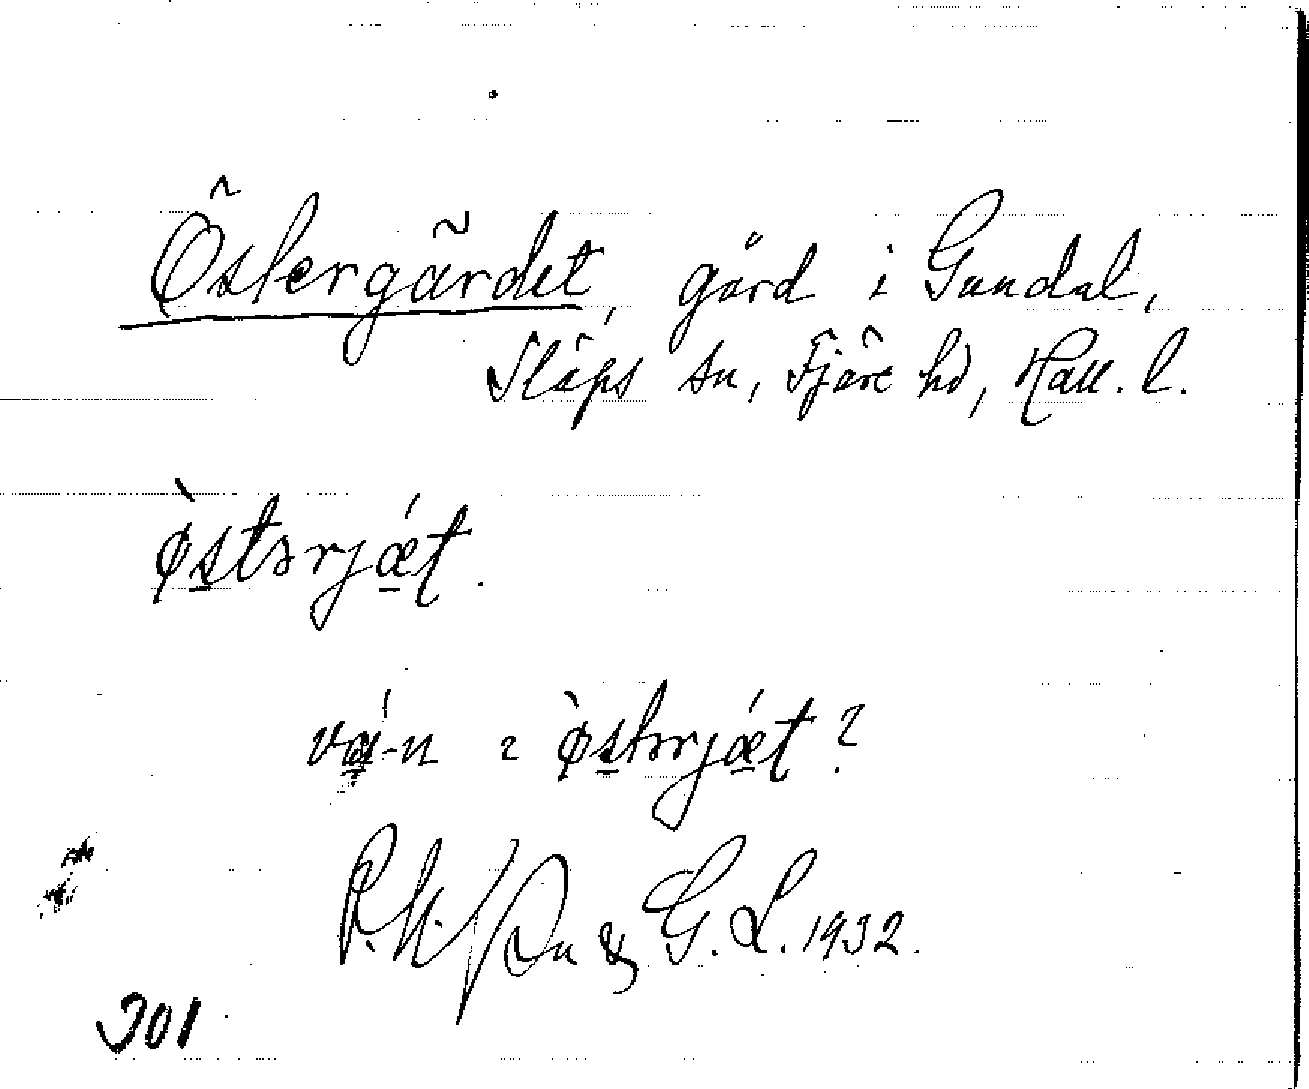 Östergärdet, gård i Gundal,
Släps sn, Fjäre hd, Hall. l.
ø̀stərjǽt.
vá-n i ø̀stərjǽt?
P.N./On & G. L. 1932.
301